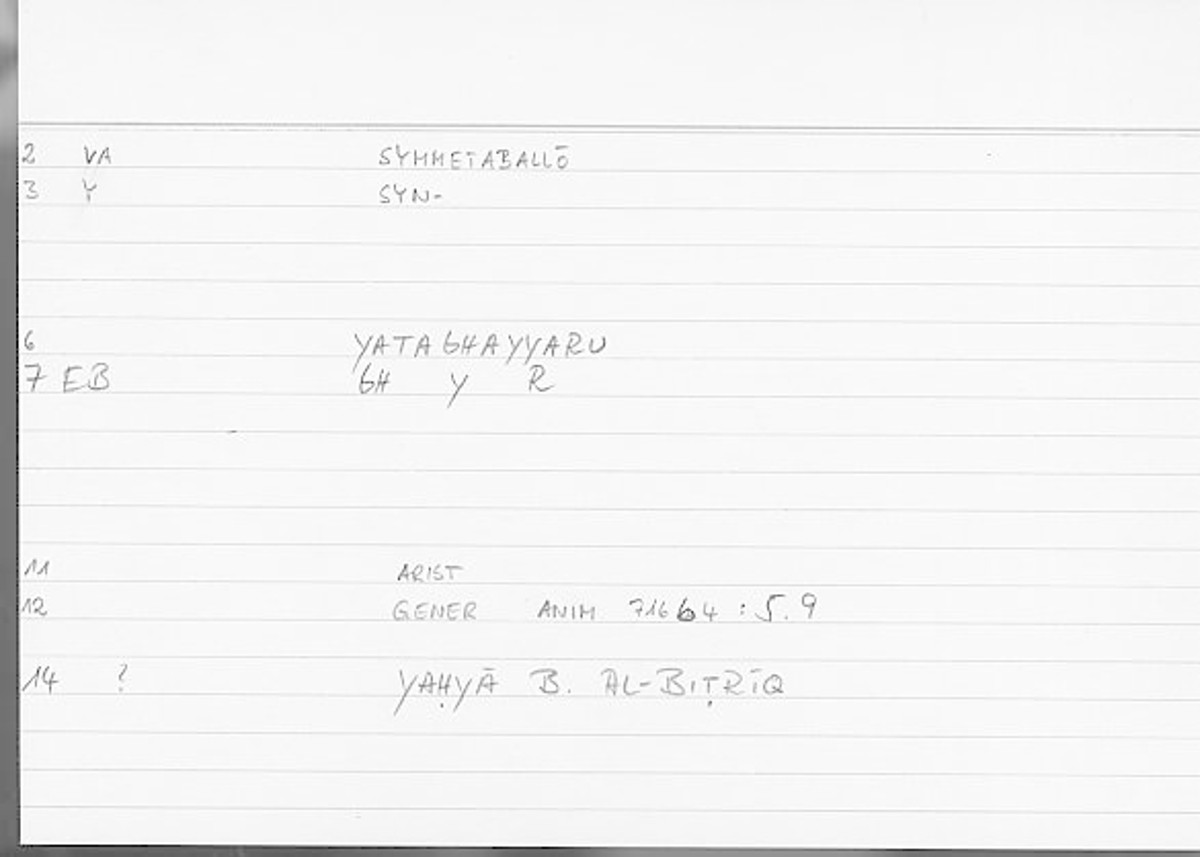 2 VA SYMMETABALLŌ
3 Y SYN-
6 YATAGHAYYARU
7 EB GH Y R
11 ARIST
12 GENER ANIM 716b4 : 5.9
14 ? YAḤYĀ B. AL-BIṬRĪQ